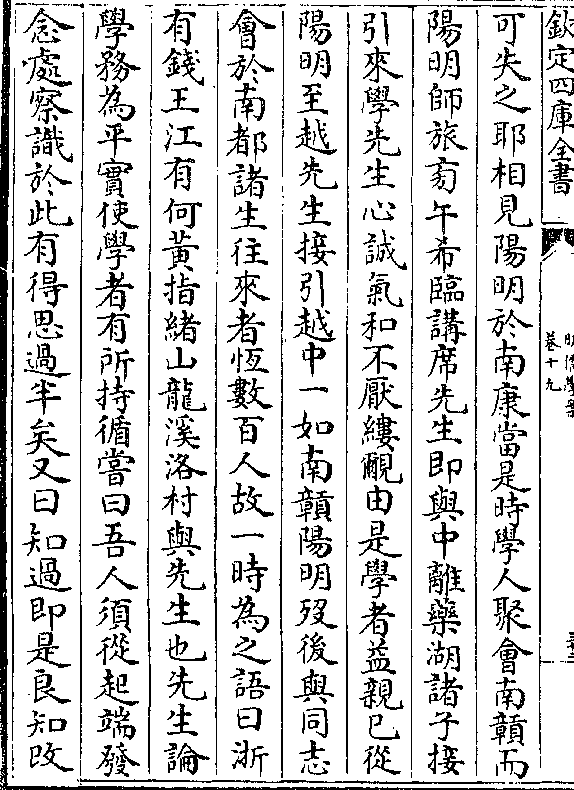 欽定四庫全書
明儒學案
卷十九
可失之耶相見陽明於南康當是時學人聚會南贛而
陽明師旅旁午希臨講席先生即與中離藥湖諸子接
引來學先生心誠氣和不厭縷覼由是學者益親已從
陽明至越先生接引越中一如南贛陽明歿後與同志
會於南都諸生往來者恆數百人故一時為之語曰浙
有錢王江有何黃指緒山龍溪洛村與先生也先生論
學務為平實使學者有所持循嘗曰吾人須從起端發
念處察識於此有得思過半矣又曰知過即是良知改